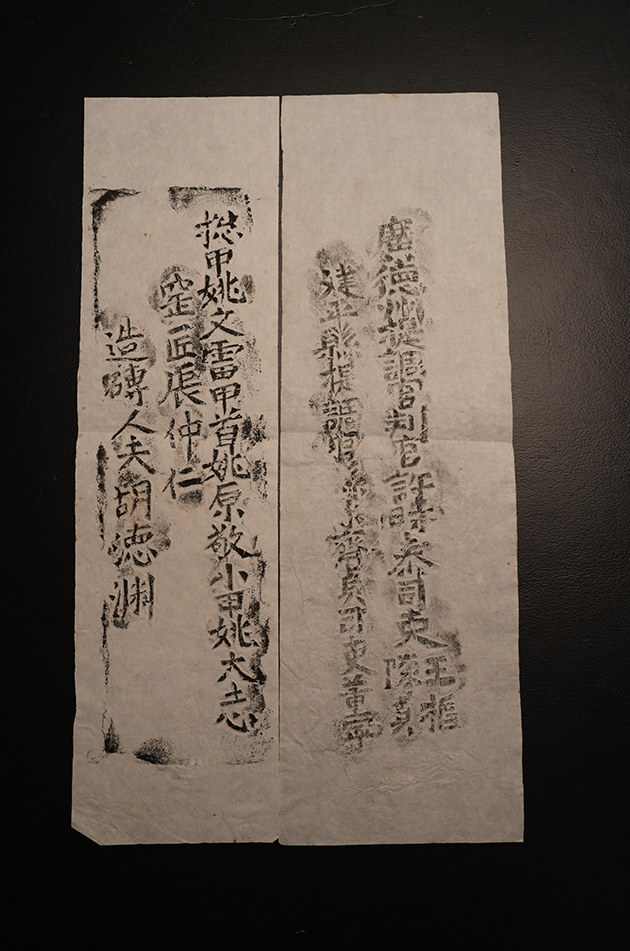 廣德州提調官判官許司吏王樞
陳
建平縣提調官主簿齊貞司吏董
捴甲姚文雷甲首姚原敬小甲姚太志
窑匠張仲仁
造磚人夫胡德渊